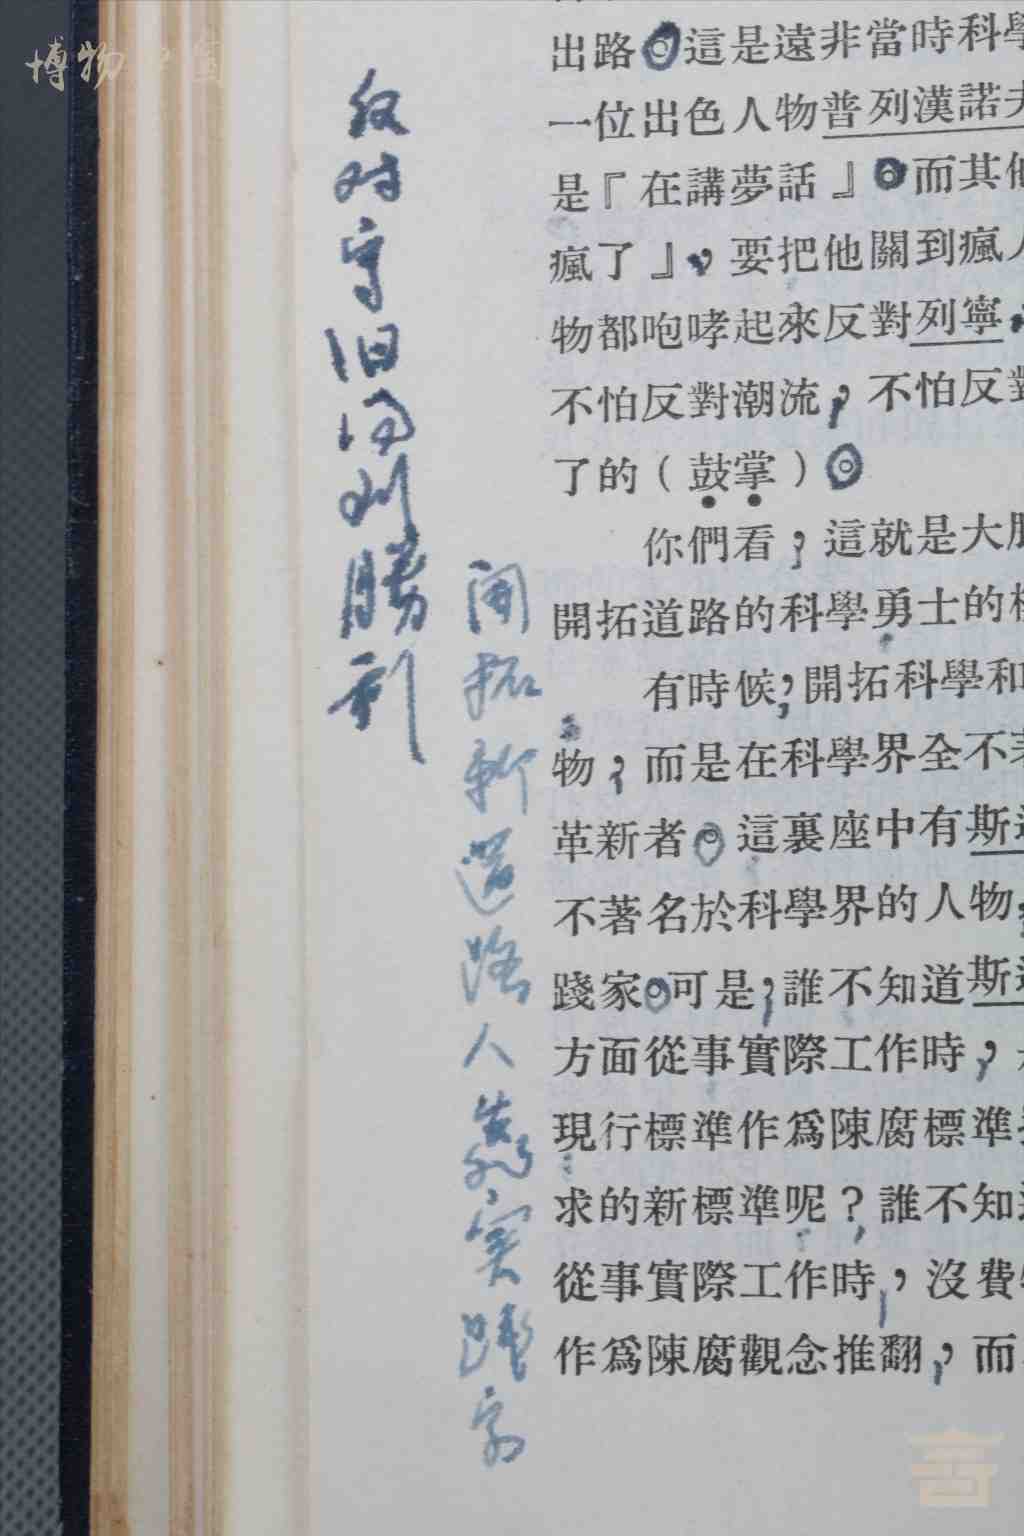 反对守旧得到胜利
开拓新道路人为实践家
出路。這是遠非當時科學
一位出色人物普列漢諾夫
是『在講夢話』。而其他
瘋了』，要把他關到瘋人
物都咆哮起來反對列寧，
不怕反對潮流，不怕反對
了的（鼓掌）。
你們看，這就是大膽
開拓道路的科學勇士的
有時候，開拓科學和
物，而是在科學界全不著
革新者。這裏座中有斯
不著名於科學界的人物，
踐家。可是，誰不知道斯
方面從事實際工作時，
現行標準作爲陳腐標準
求的新標準呢？誰不知道
從事實際工作時，沒費
作爲陳腐觀念推翻，而